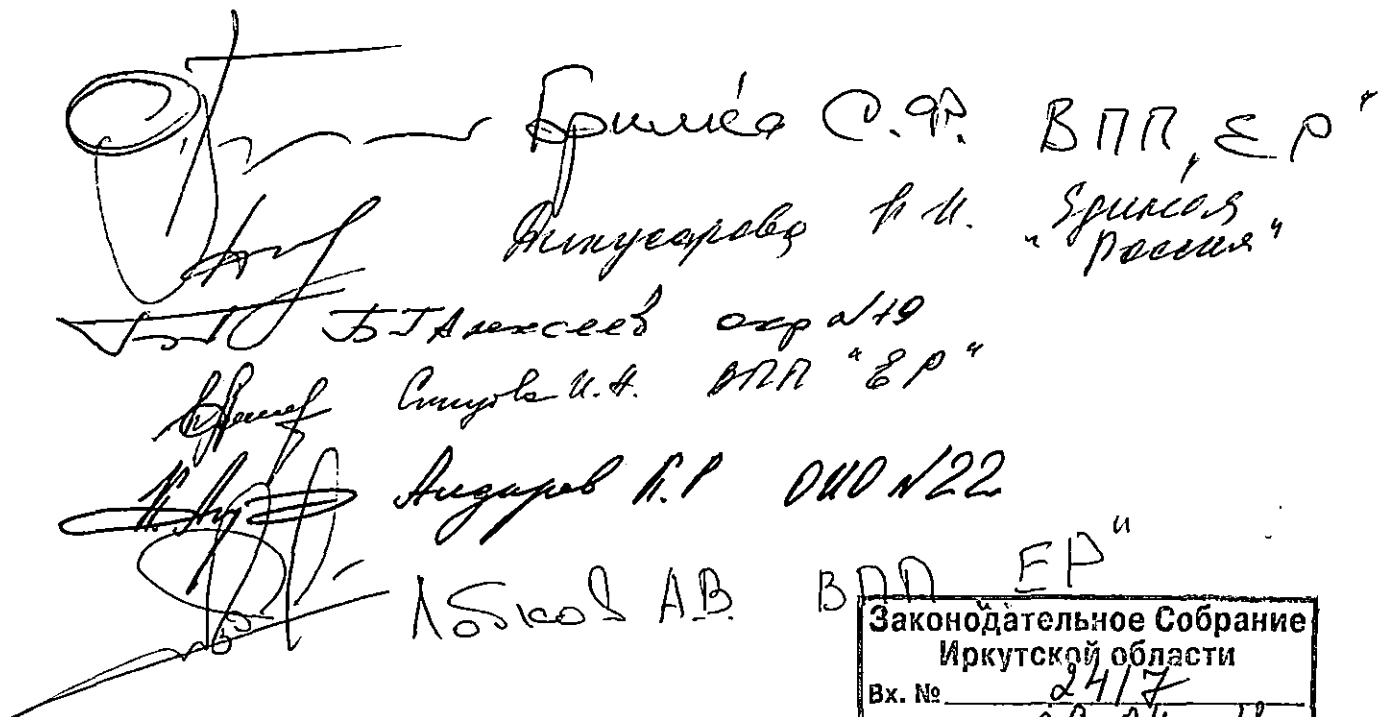 Брилка С.Ф. ВПП „ЕР"
Р.И. "Единая
Россия"
Б Г Алексеев окр №19
Синцова И.А. ВПП "ЕР"
Алдаров К.Р ОИО №22
Лобков А.В. ВПП ЕР"
Законодательное Собрание
Иркутской области
Вх. № 2417